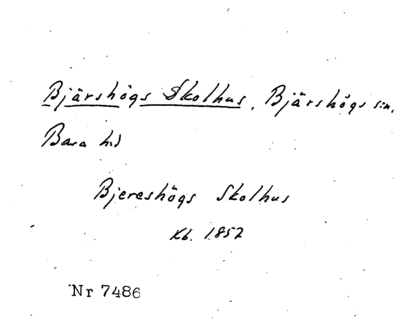 Bjärshögs Skolhus, Bjärshögs s:n,
Bara hd
Bjereshögs Skolhus
Kb. 1857
Nr 7486